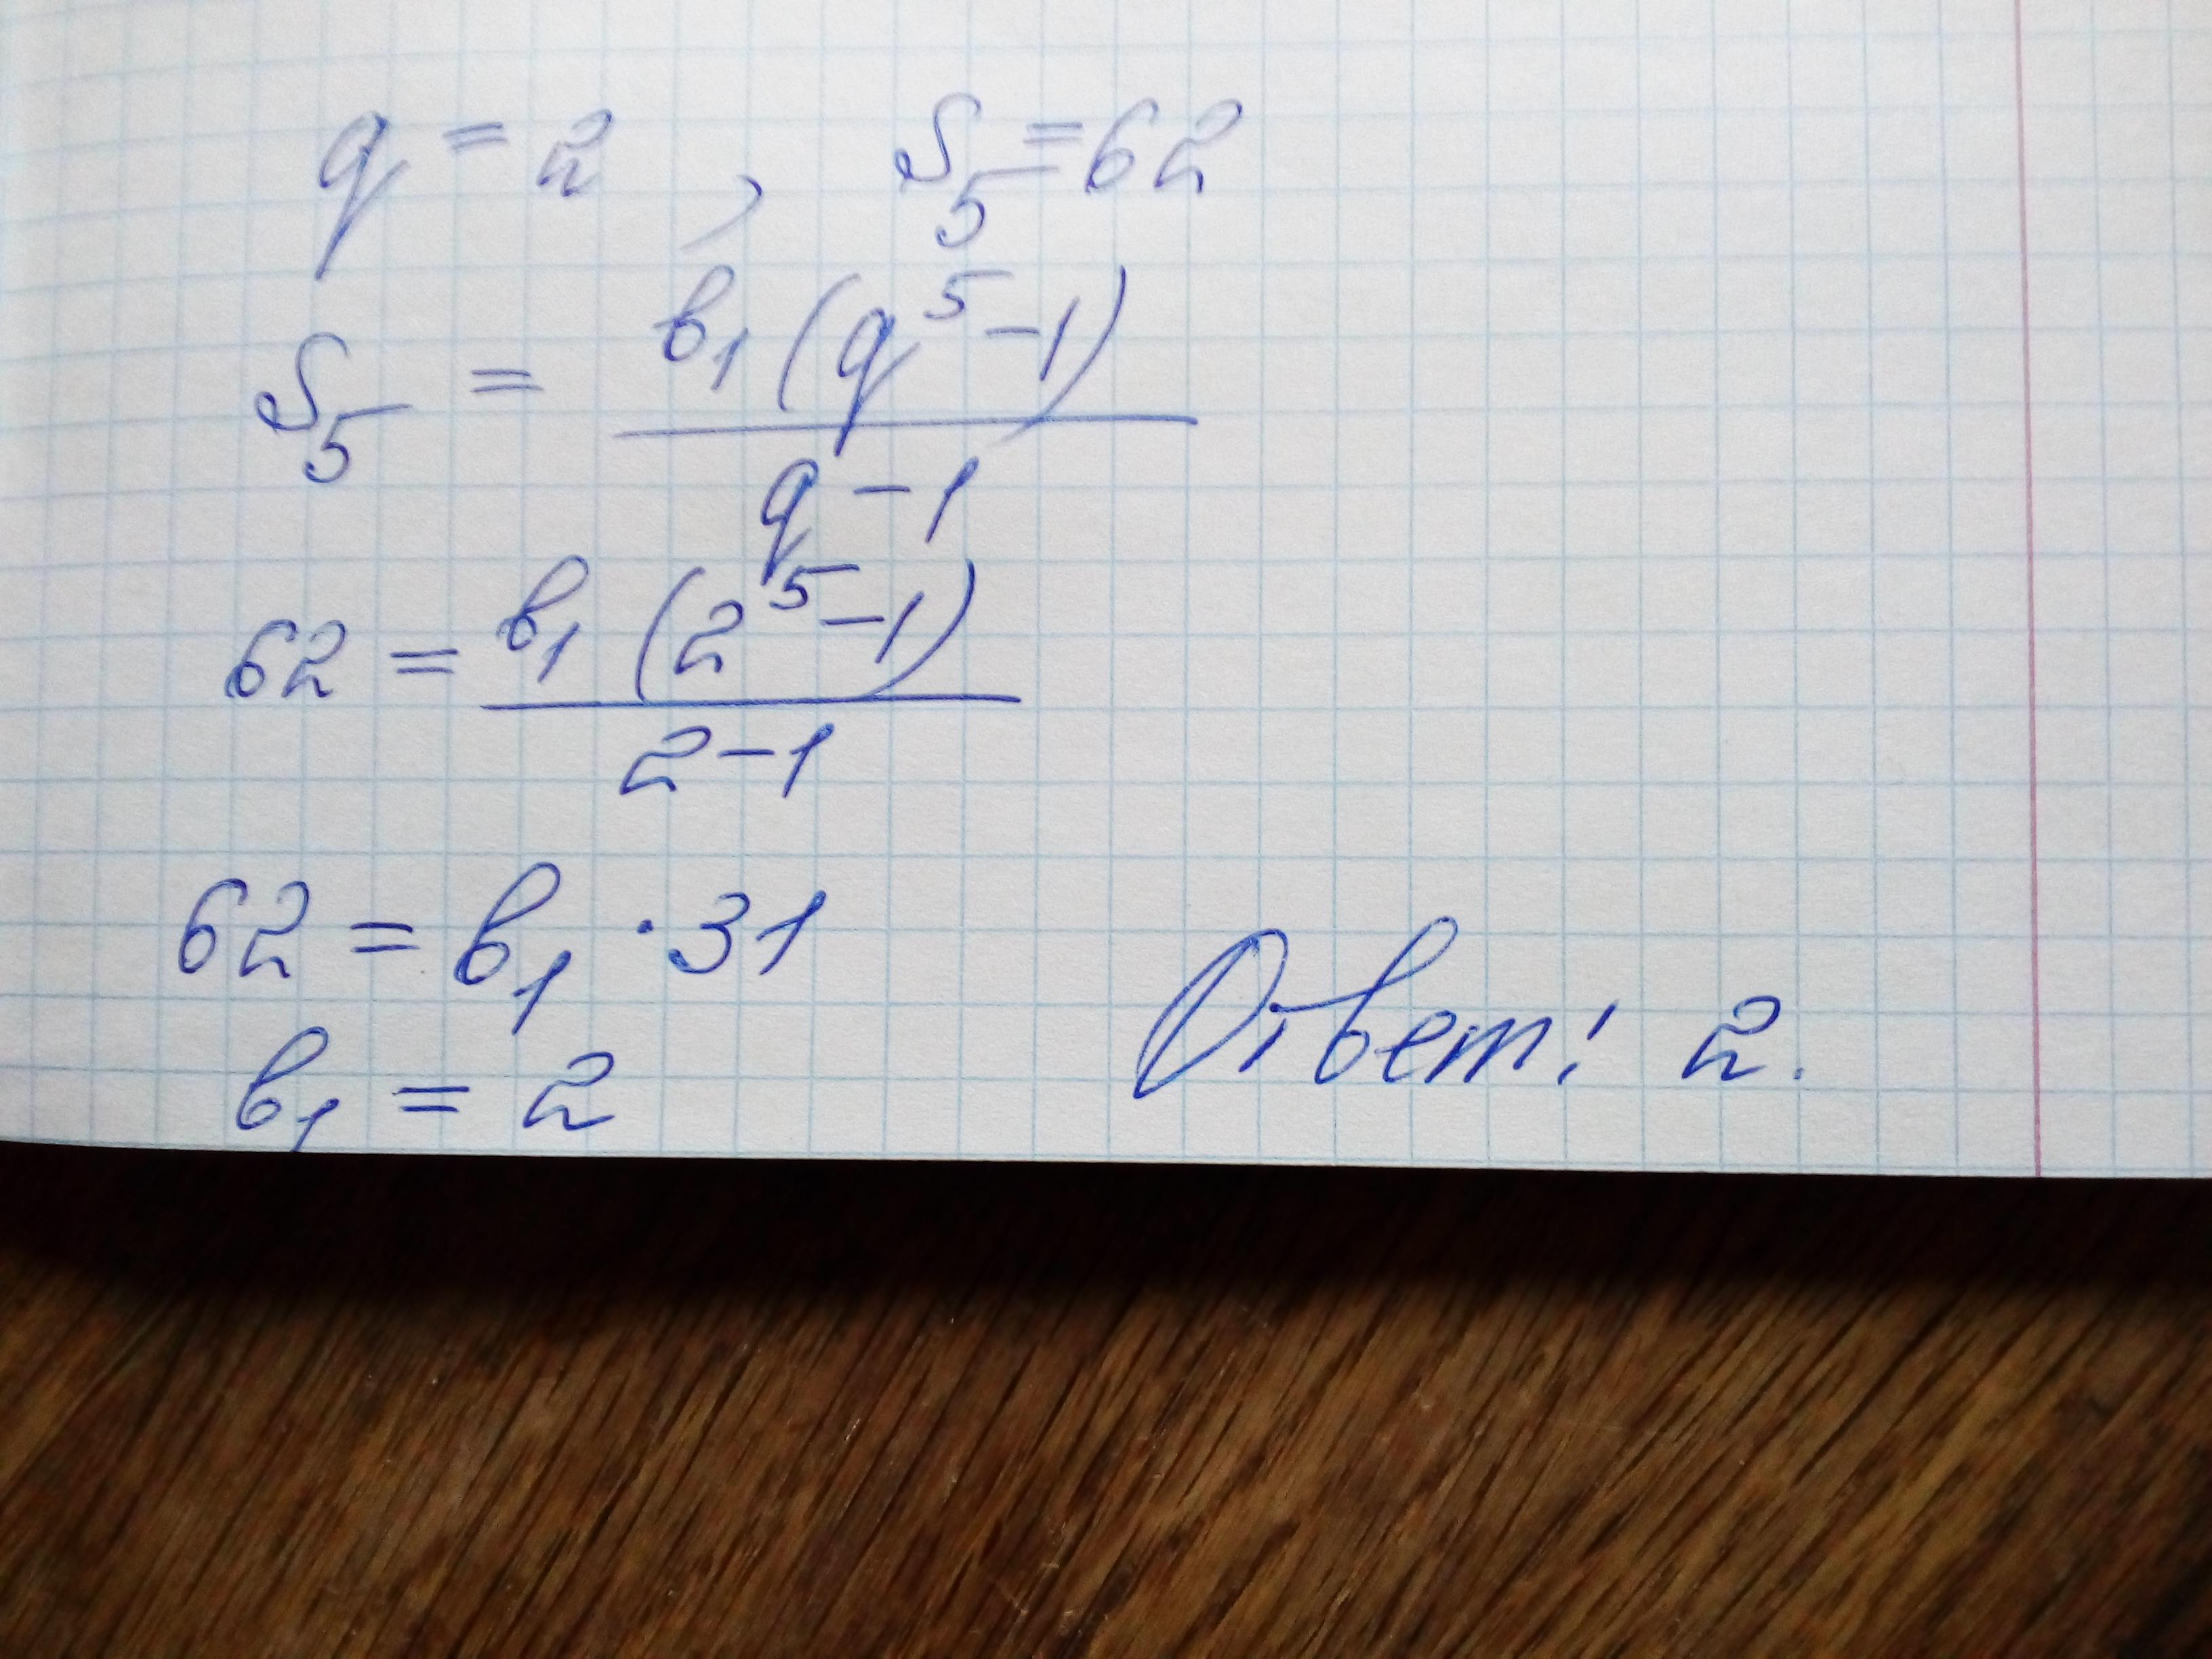 q = 2 , S₅ = 62
S₅ = b₁(q⁵ - 1) / q - 1
62 = b₁(2⁵ - 1) / 2 - 1
62 = b₁ · 31
b₁ = 2
Ответ: 2.